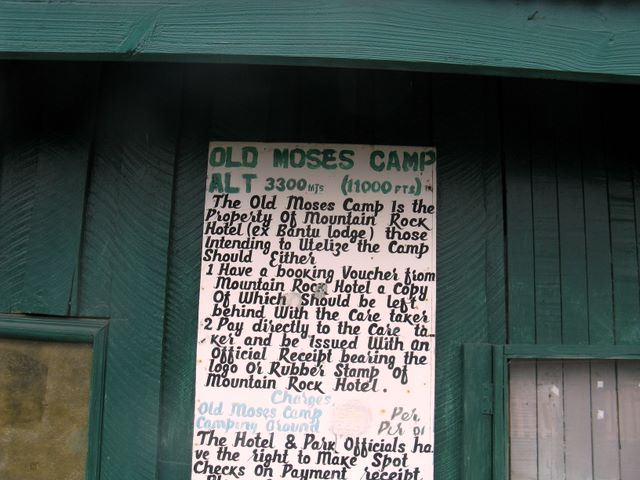 OLD MOSES CAMP
ALT 3300 MTS (11000 FTS)
The Old Moses Camp Is the
Property Of Mountain Rock
Hotel (ex Bantu lodge) those
Intending to Utelize the Camp
Should Either
1 Have a booking Voucher from
Mountain Rock Hotel a Copy
Of Which Should be left
behind With the Care taker
2 Pay directly to the Care ta
ker and be Issued With an
Official Receipt bearing the
logo Or Rubber Stamp of
Mountain Rock Hotel.
Charges.
Old Moses Camp Per
Camping Ground Per
The Hotel & Park Officials ha
ve the right to Make Spot
Checks On Payment receipt